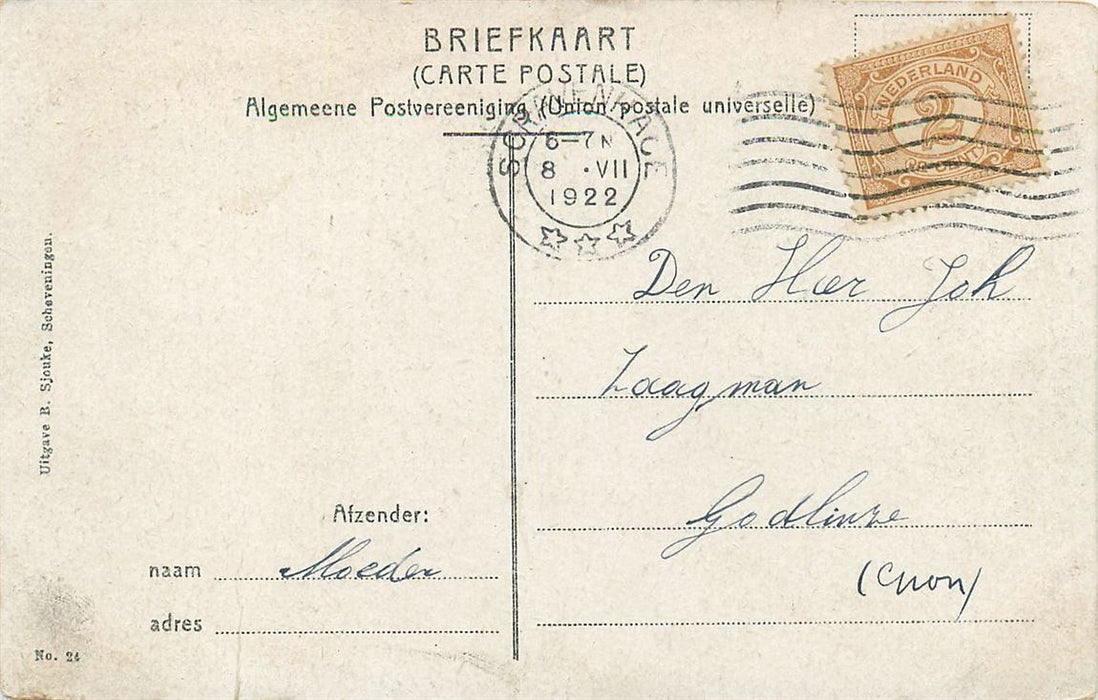 BRIEFKAART
(CARTE POSTALE)
Algemeene Postvereeniging (Union postale universelle)
NEDERLAND
2
6-7N
8 ·VII
1922
Den Heer Joh
Zaagman
Godlinze
Uitgave B. Sjouke, Scheveningen.
Afzender:
naam Moeder
adres
No. 24